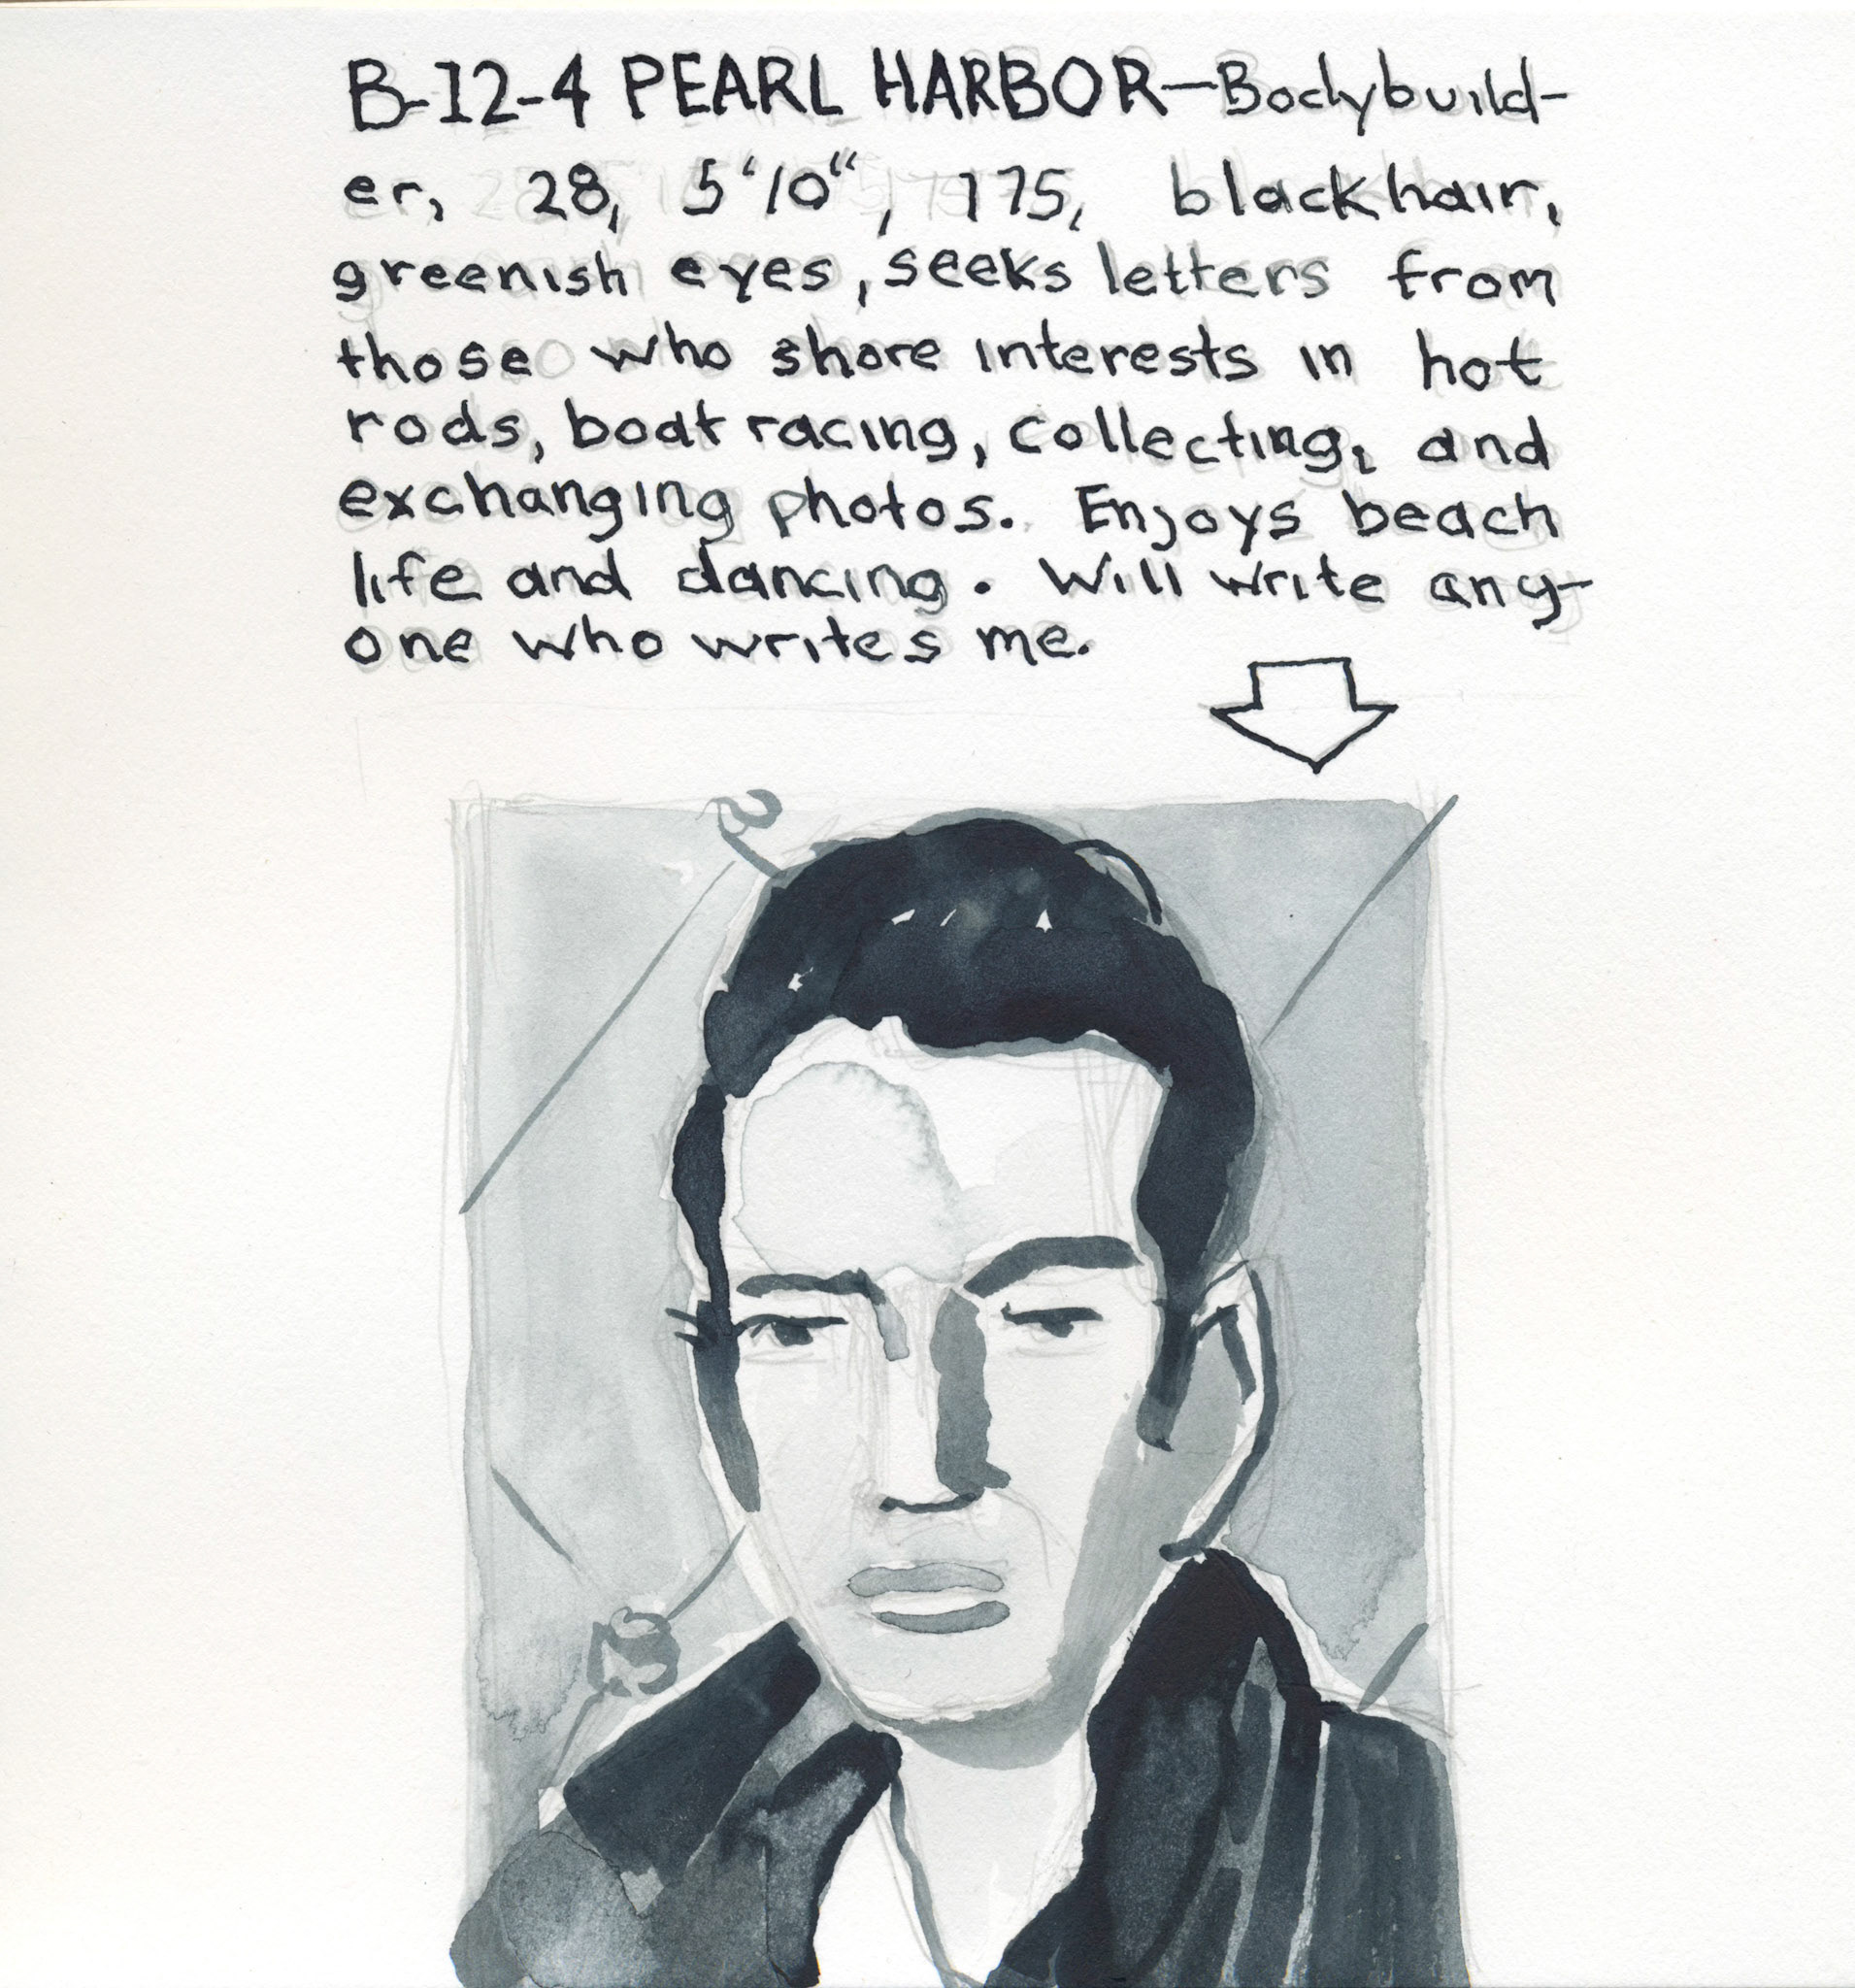 B-12-4 PEARL HARBOR—Bodybuild-
er, 28, 5'10", 175, black hair,
greenish eyes, seeks letters from
those who share interests in hot
rods, boat racing, collecting, and
exchanging photos. Enjoys beach
life and dancing. Will write any-
one who writes me.